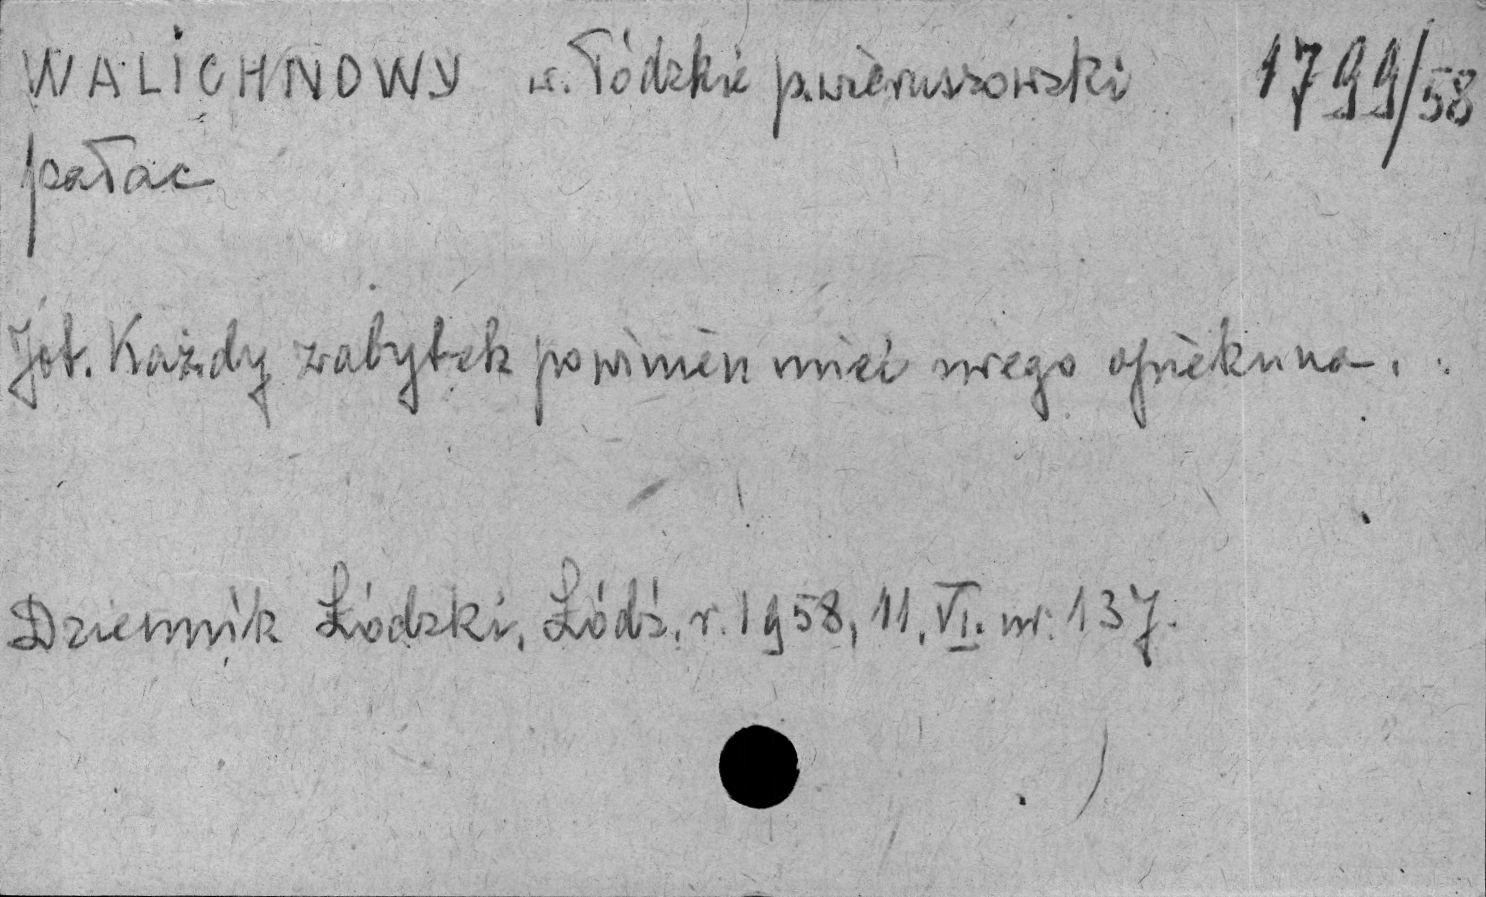 WALICHNOWY w. łódzkie p.wieruszowski 1799/58
pałac
Jot. Każdy zabytek powinien mieć swego opiekuna.
Dziennik Łódzki, Łódź, r. 1958, 11. VI. nr. 137.